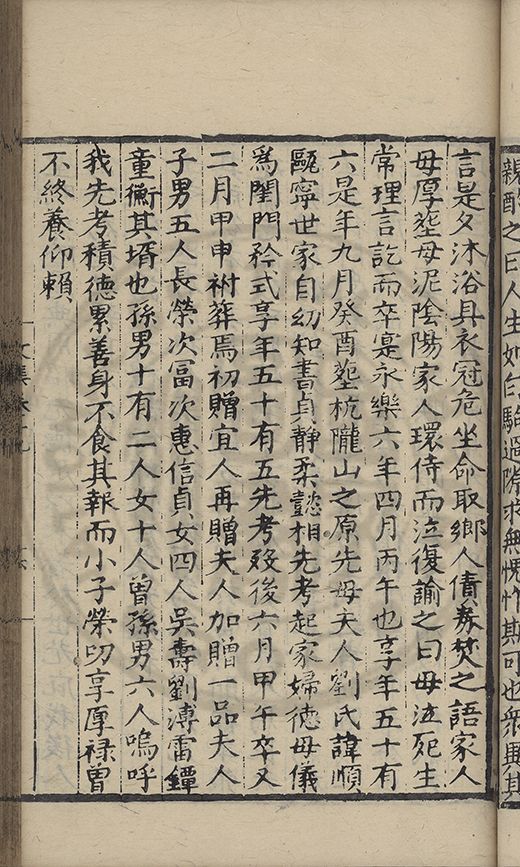 親酌之曰人生如白駒過隙求無愧怍可也衆其
言是夕沐浴具衣冠危坐命取鄉人債券焚之語家人
母厚塟母泥陰陽家人環侍而泣復諭之曰母泣死生
常理言訖而卒寔永樂六年四月丙午也享年五十有
六是年九月癸酉塟杭隴山之原先母夫人劉氏諱順
甌寧世家自幼知書貞靜柔懿相先考起家婦德母儀
爲閨門矜式享年五十有五先考歿後六月甲午卒又
二月甲申祔葬焉初贈宜人再贈夫人加贈一品夫人
子男五人長榮次富次惠信貞女四人吳壽劉溥雷鐔
童衡其壻也孫男十有二人女十人曾孫男六人嗚呼
我先考積德累善身不食其報而小子榮叨享厚祿曾
不終養仰賴